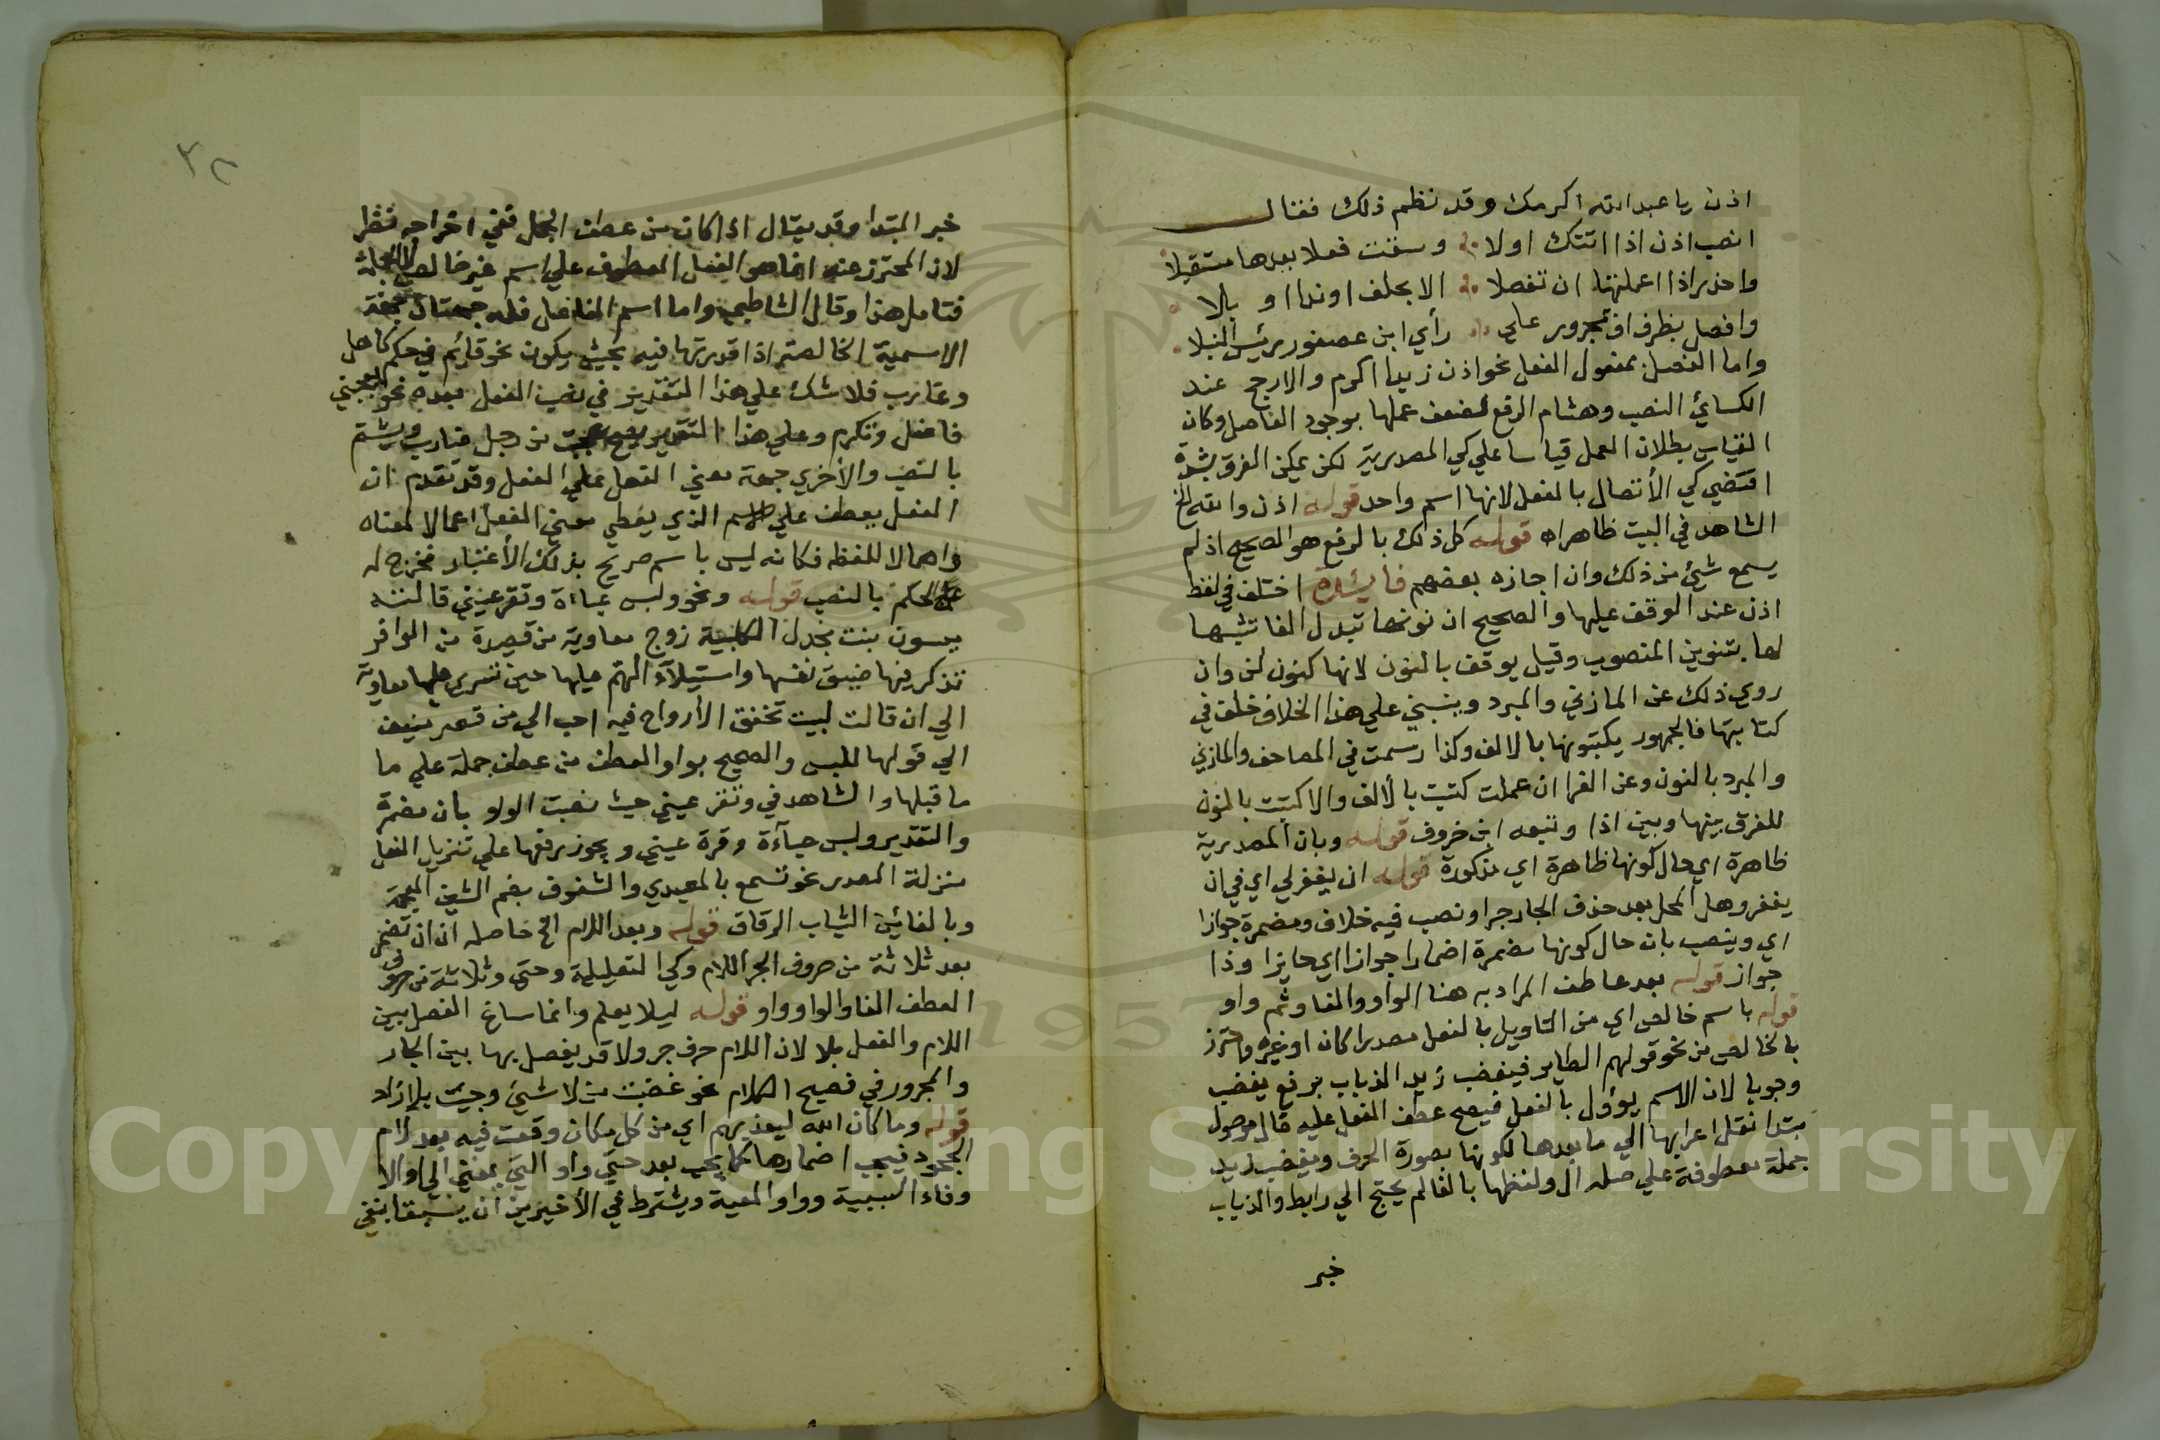 اذن يا عبد الله اكرمك وقد نظم ذلك فقال
انصب اذن اذا اتتك اولا وسقت فعلا بعدها مستقبلا
واحذر اذا اعملتها ان تفصلا الا بحلف او ندا او بلا
وافصل بظرف او بمجرور على رأي ابن عصفور رئيس النبلا
واما الفصل بمفعول الفعل نحو اذن زيدا اكرم والارجح عند
الكسائي النصب وهشام الرفع لضعف عملها بوجود الفاصل وكان
القياس بطلان العمل قياسا علي كي المصدرية لكن يمكن الفرق بشدة
اقتضي كي الأتصال بالفعل لانها اسم واحد قوله اذن والله الخ
الشاهد في البيت ظاهر اه قوله كل ذلك بالرفع هو الصحيح اذ لم
يسمع شئ من ذلك وان اجازه بعضهم فائدة اختلف في لفظ
اذن عند الوقف عليها والصحيح ان نونها تبدل الفا تشبيها
لها بتنوين المنصوب وقيل يوقف بالنون لانها كنون لن وان
روي ذلك عن المازني والمبرد وينبني علي هذا الخلاف خلف في
كتابتها فالجمهور يكتبونها بالالف وكذا رسمت في المصاحف والمازني
والمبرد بالنون وعن الفرا ان عملت كتبت بالألف والا كتبت بالنون
للفرق بينها وبين اذا وتبعه ابن خروف قوله وبان المصدرية
ظاهرة اي حال كونها ظاهرة اي مذكورة قوله ان يغفر لي اي في ان
يغفر وهل المحل بعد حذف الجار جر او نصب فيه خلاف ومضمرة جوازا
اي وينصب بان حال كونها مضمرة اضمارا جوازا اي جايزا وذا
جواز قوله بعد عاطف المراد به هنا الواو والفا وثم واو
قوله باسم خالص اي من التاويل بالفعل مصدرا كان او غيره واحترز
بالخالص من نحو قولهم الطاير فيغضب زيد الذباب برفع يغضب
وجوبا لان الاسم يؤول بالفعل فيصح عطف الفعل عليه فال موصول
مبتدا نقل اعرابها الي ما بعدها لكونها بصورة الحرف ويغضب زيد
جملة معطوفة علي صلة ال ولفظها بالفا لم يحتج الي رابط والذباب
خبر
٣٨
خبر المبتدا وقد يقال اذا كان من عطف الجمل ففي اخراجه نظر
لان المحترز عنه انما هو الفعل المعطوف علي اسم غير خالص لا الجملة
فتامل هذا وقال الشاطبي واما اسم الفاعل فله جهتان جهة
الاسمية الخالصة اذا قدرتها فيه بحيث يكون نحو قائم في حكم كاهل
وغارب فلا شك علي هذا التقدير في نصب الفعل بعده نحو يعجبني
فاضل وتكرم وعلي هذا التقدير يصح عجبت من رجل ضارب ويشتم
بالنصب والأخري جهة معني الفعل علي الفعل وقد تقدم ان
الفعل يعطف علي الاسم الذي يعطي معني الفعل اعمالا لمعناه
واهمالا للفظه فكانه ليس باسم صريح بذلك الأعتبار فخرج له
عن الحكم بالنصب قوله ونحو ولبس عباءة وتقر عيني قالته
ميسون بنت بجدل الكلبية زوج معاوية من قصيدة من الوافر
تذكر فيها ضيق نفسها واستيلآء الهم عليها حين تسري عليها معاوية
الي ان قالت لبيت تخفق الأرواح فيه احب الي من قصر منيف
الي قولها للبس والصحيح بواو العطف من عطف جملة علي ما
ما قبلها والشاهد في وتقر عيني حيث نصبت الواو بان مضمرة
والتقدير ولبس عباءة وقرة عيني ويجوز رفعها علي تنزيل الفعل
منزلة المصدر نحو تسمع بالمعيدي والشفوف بضم الشين المعجمة
وبالفائين الثياب الرقاق قوله وبعد اللام الخ حاصله ان ان تضمر
بعد ثلاثة من حروف الجر اللام وكي التعليلية وحتى وثلاثة من حروف
العطف الفا والواو واو قوله ليلا يعلم وانما ساغ الفصل بين
اللام والفعل بلا لان اللام حرف جر ولا قد يفصل بها بين الجار
والمجرور في فصيح الكلام نحو غضبت من لا شيئ وجيت بلا زاد
قوله وما كان الله ليعذبهم اي من كل مكان وقعت فيه بعد لام
الجحود فيجب اضمارها كما يجب بعد حتى واو التي بمعني الي او الا
وفاء السببية وواو المعية ويشترط في الأخيرين ان يسبقا بنفي
Copyright © King Saud University
1957